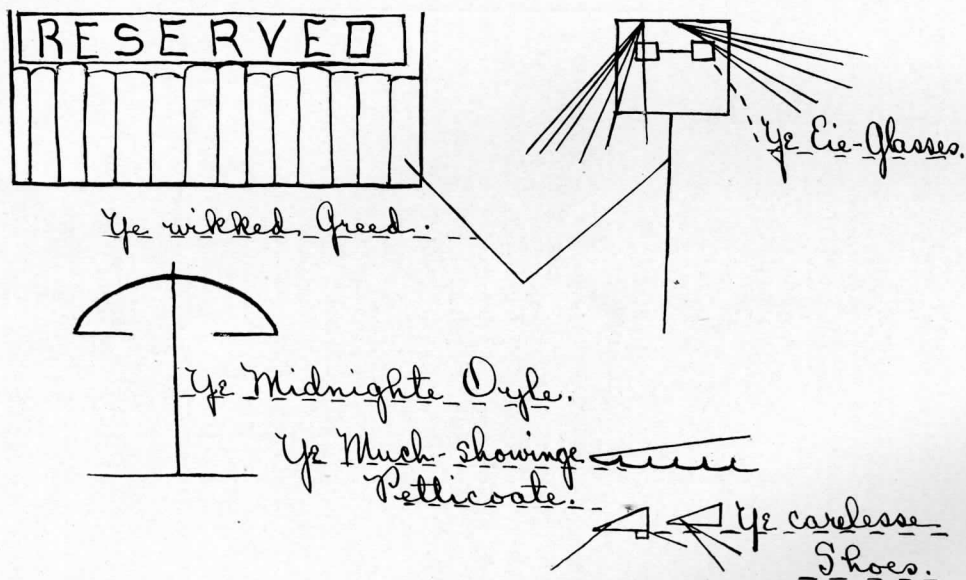 RESERVED
Ye Eie-Glasses.
Ye wikked Greed.
Ye Midnighte Oyle.
Ye Much-showinge
Petticoate.
Ye carelesse
Shoes.